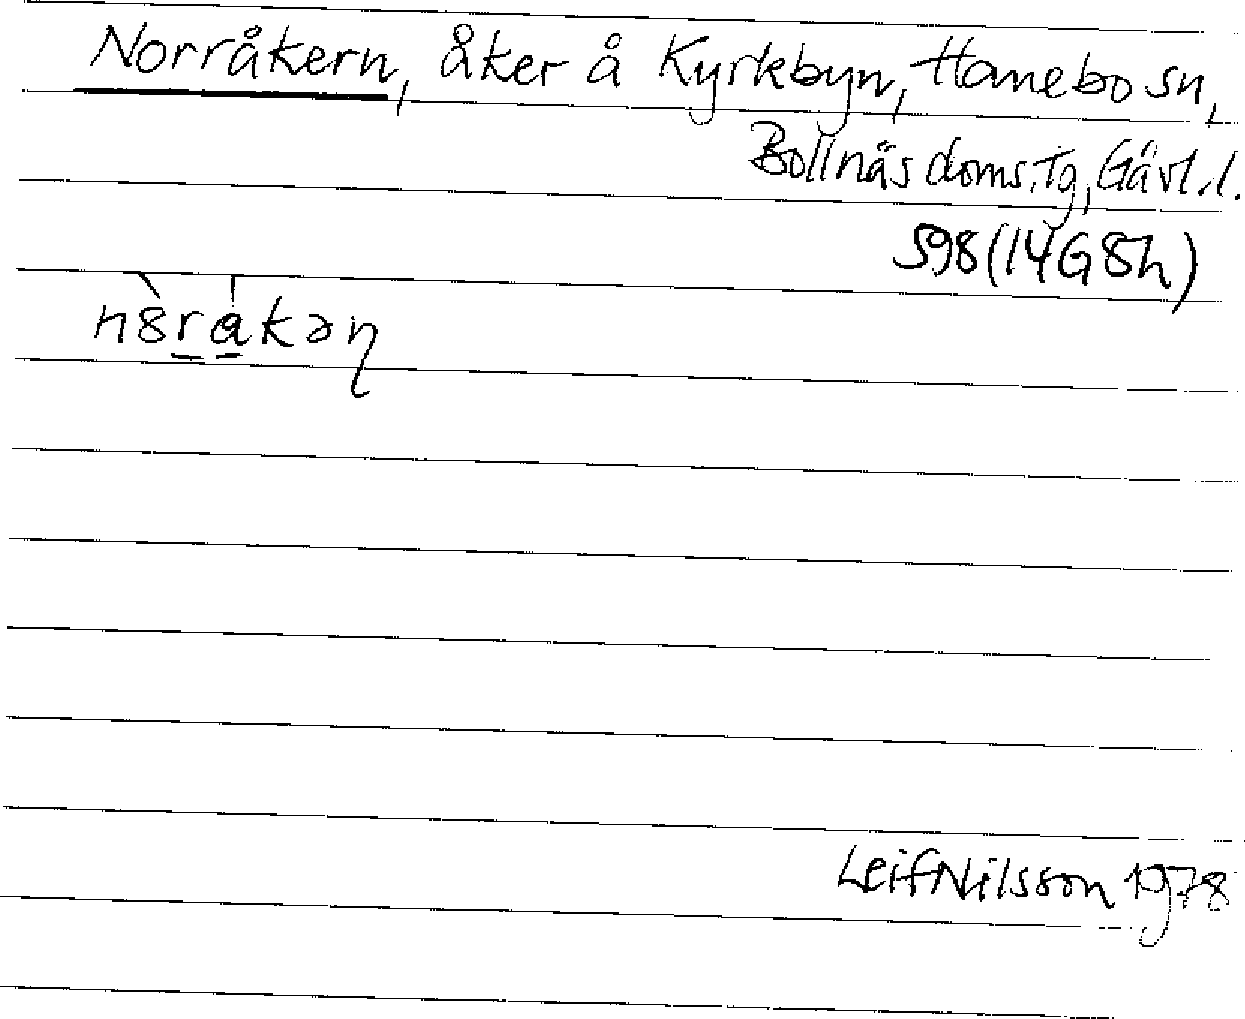 Norråkern, åker å Kyrkbyn, Hanebo sn,
Bollnäs doms. tg, Gävl. l.
598 (14G8h)
nòråkəɳ
Leif Nilsson 1978